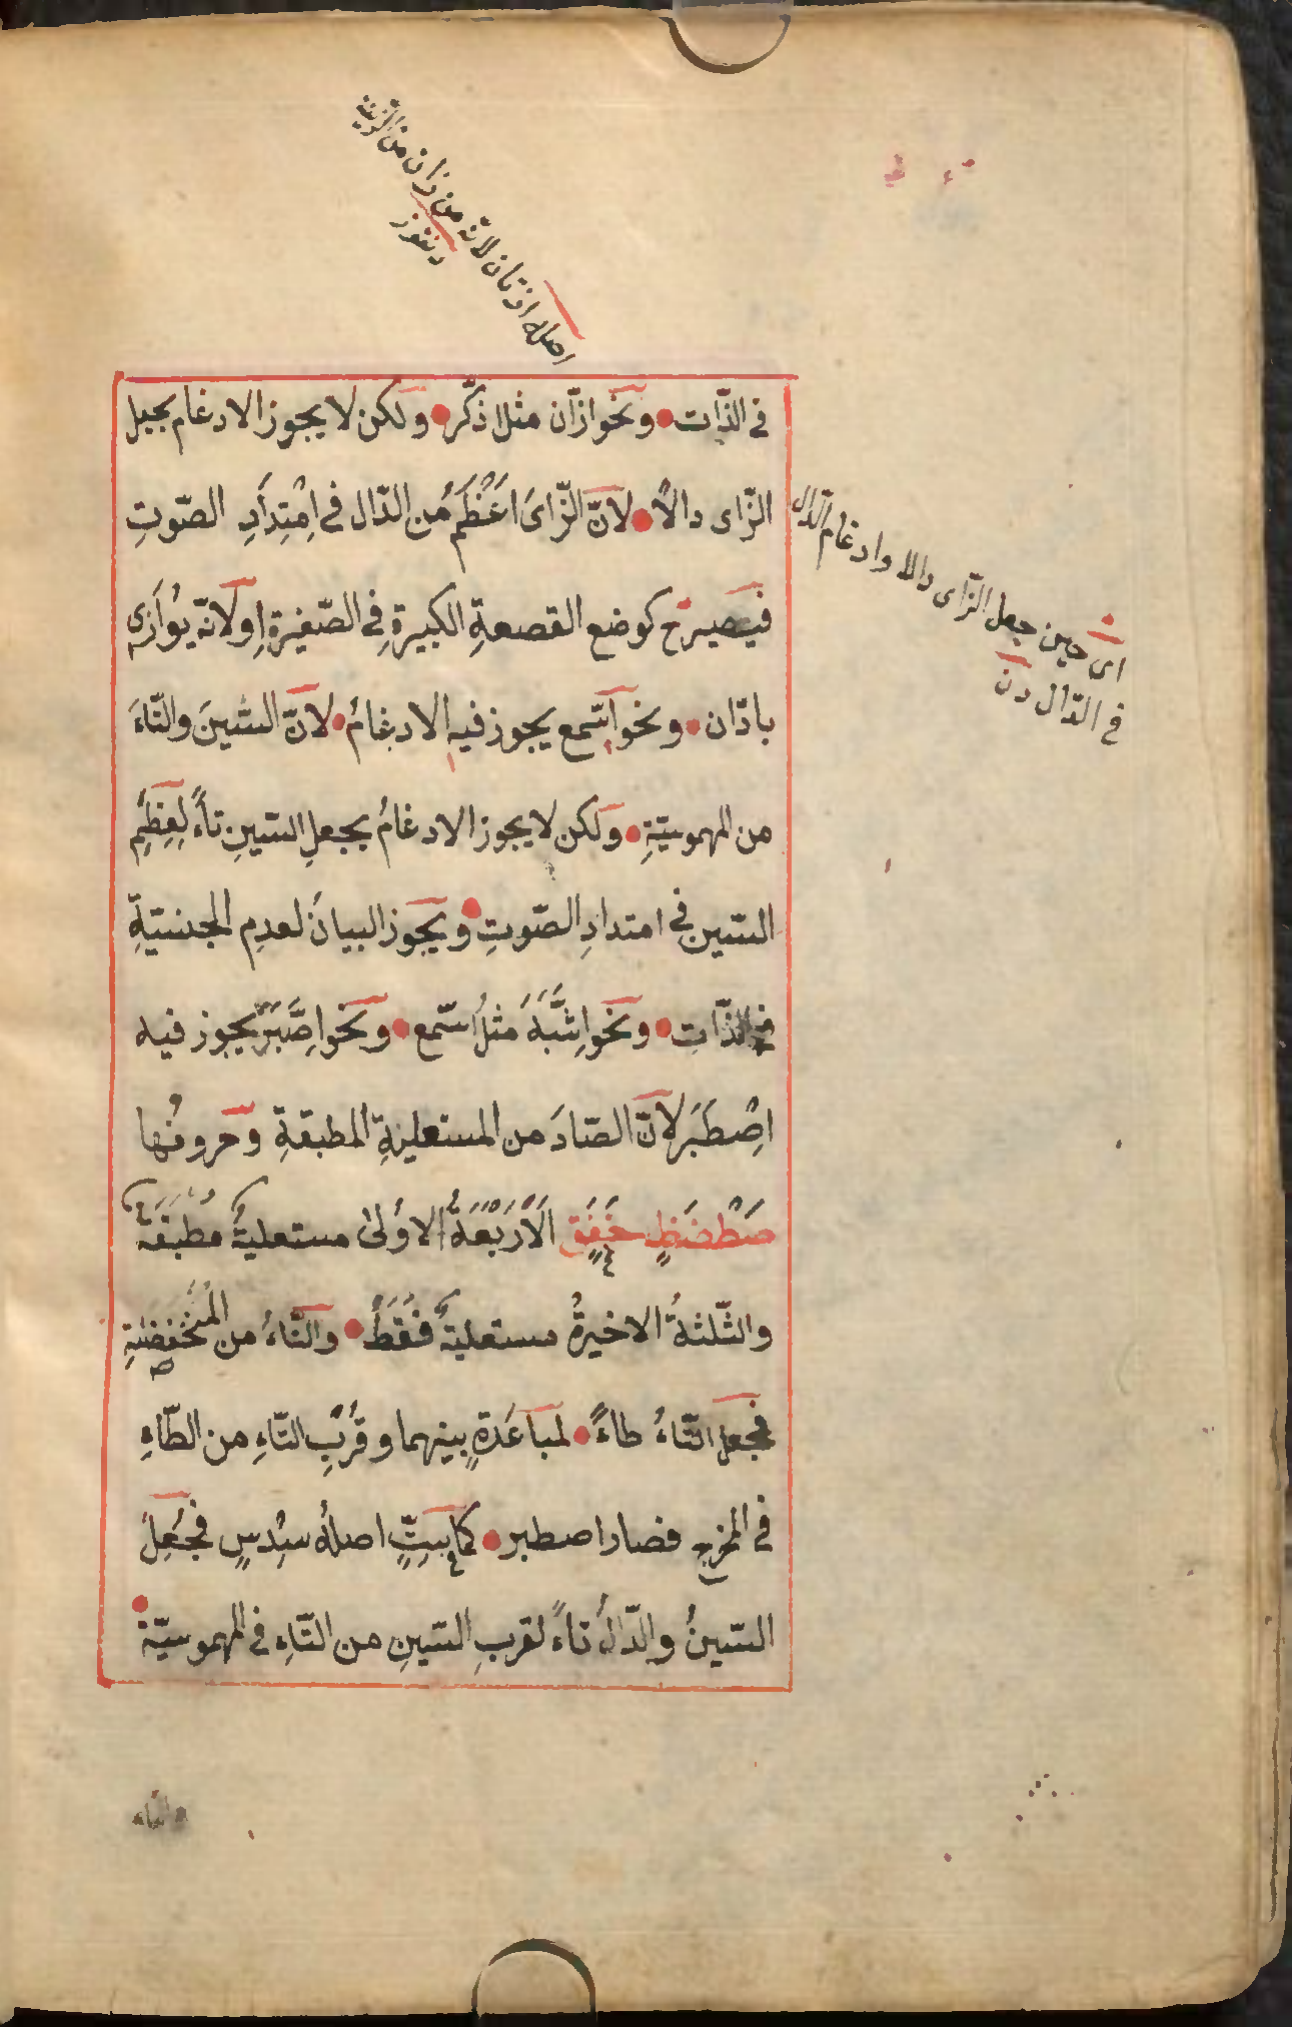 اصله ازتان لانه من زان من الزينة
دنقوز
في الذّات ونحو ازّان مثل اذّكّر ولكن لا يجوز الادغام بجعل
الزّاى دالاً لانّ الزّاىَ اَعْظَمُ من الدّال في اِمْتِدَادِ الصّوتِ
فيصير ح كوضع القصعةِ الكبيرةِ في الصّغيرةِ او لانّه يُوَازِى
بادّان ونحو اسّمع يجوز فيه الادغامُ لانّ السّينَ والتّاءَ
من المهموسيّةِ ولكن لا يجوز الادغامُ بجعلِ السّينِ تاءً لِعِظَمِ
السّين في امتدادِ الصّوتِ ويجوز البيانُ لعدمِ الجنسيّةِ
في الذّاتِ ونحو اِشَّبَهَ مثلُ اسّمع ونحو اِصَّبَرَ يجوز فيه
اِصْطَبَرَ لانّ الصّادَ من المستعليةِ المطبقةِ وحروفُها
صَطْضَظٍ خَغَقٍ اَلْاَرْبَعَةُ الاُولىٰ مستعليةٌ مُطبَقَةٌ
والثّلثةُ الاخيرةُ مستعليةٌ فَقَطْ والتّاءُ من المُنْخَفِضَةِ
فجعل التّاءُ طاءً لمباعَدةٍ بينهما وقُرْبِ التّاءِ من الطّاءِ
في المخرج فصار اصطبر كما في سِتٍّ اصلُه سِدْسٍ فجُعِلَ
السّينُ والدّالُ تاءً لقربِ السّينِ من التّاءِ في المهموسيّة
اى حين جعل الزّاى دالا وادغام الدّال
في الدّال دن
والتاء